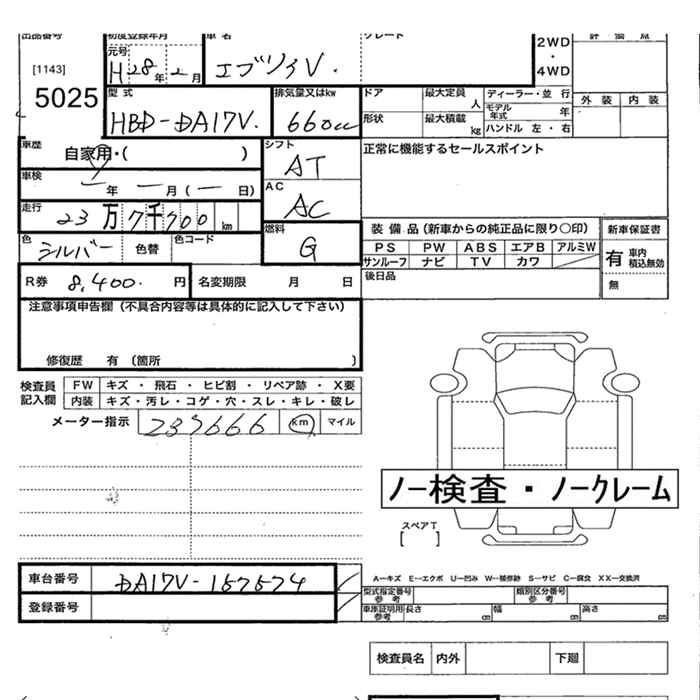 出品番号 初度登録年月 車名 グレード 評価点
元号
[1143] H28年2月 エブリイV. 2WD・4WD
5025 型式 排気量又はkw ドア 最大定員 人 ディーラー・並行 外装 内装
モデル年式 年
HBD-DA17V. 660cc 形状 最大積載 kg ハンドル 左・右
車歴 自家用・( ) シフト AT 正常に機能するセールスポイント
車検 ー年 ー月(ー日) AC AC
走行 23万7千700km 装備品(新車からの純正品に限り○印) 新車保証書
色 シルバー 色替 色コード 燃料 G PS PW ABS エアB アルミW 有 車内積込無効
サンルーフ ナビ TV カワ
R券 8,400.円 名変期限 月 日 後日品 無
注意事項申告欄(不具合内容等は具体的に記入して下さい)
修復歴 有(箇所 )
検査員記入欄 FW キズ・飛石・ヒビ割・リペア跡・X要
内装 キズ・汚レ・コゲ・穴・スレ・キレ・破レ
メーター指示 km マイル
ノー検査・ノークレーム
スペアT
[ ]
車台番号 DA17V-157574 A-キズ E-エクボ U-凹み W-補修跡 S-サビ C-腐食 XX-交換済
型式指定番号参考 類別区分番号参考
登録番号 車庫証明用参考 長さ cm 幅 cm 高さ cm
検査員名 内外 下廻